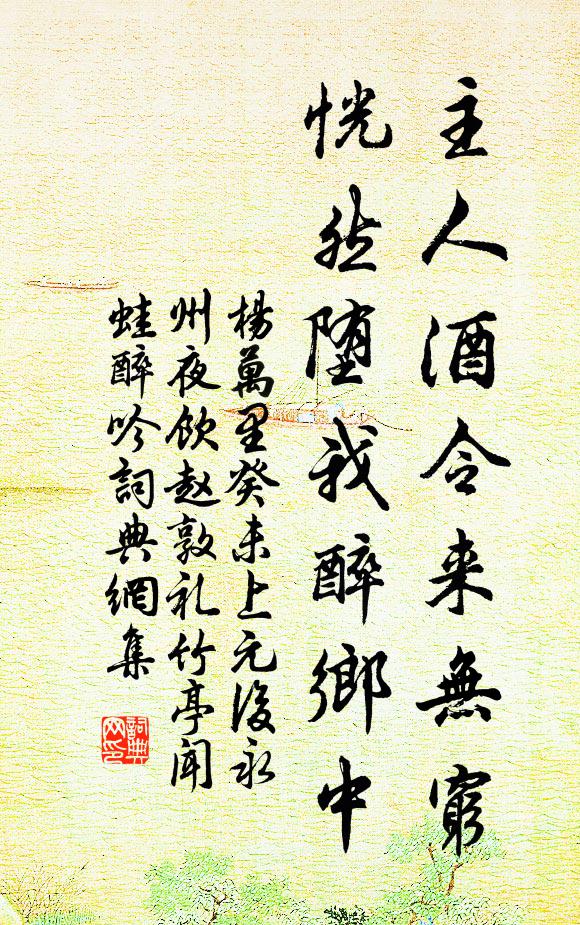 主人酒令来無窮
恍然堕我醉鄉中
楊萬里癸未上元後永
州夜飲赵敦礼竹亭闻
蛙醉吟詞典網集
詞典
网印